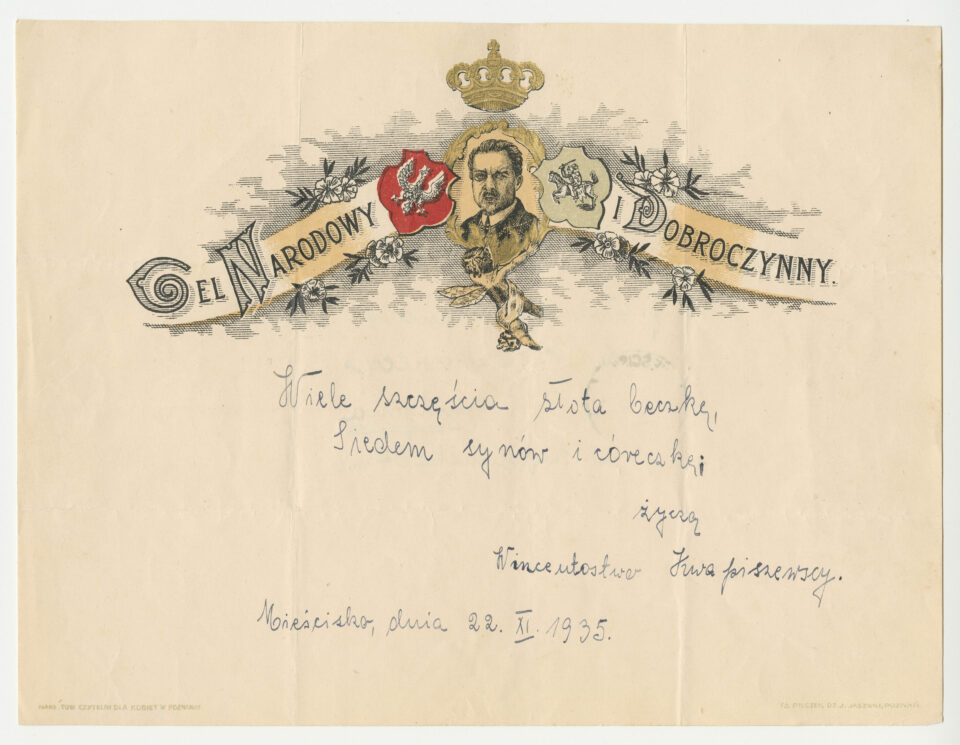 CEL NARODOWY I DOBROCZYNNY.
Wiele szczęścia złota beczkę,
Siedem synów i córeczkę;
życzą
Wincentostwo Kwapiszewscy.
Mieścisko, dnia 22. XI. 1935.
NAKŁ. TOW. CZYTELNI DLA KOBIET W POZNANIU